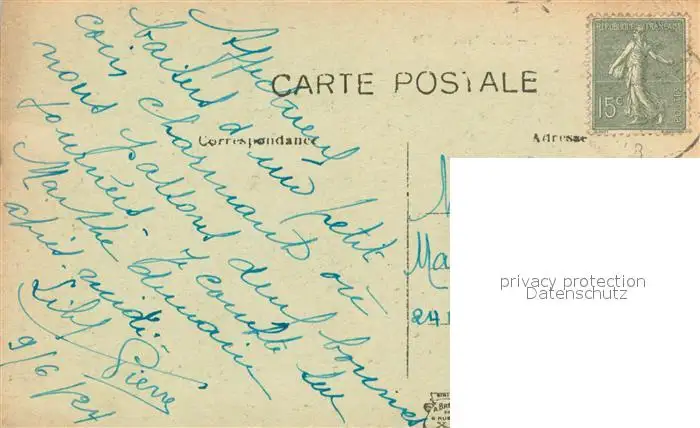 CARTE POSTALE
Correspondance
Adresse
REPUBLIQUE FRANÇAISE
15c
POSTES
Affectueux
baisers d'un petit
coin charmant où
nous passons deux bonnes
journées. Je compte sur
Marthe demain
après midi.
Pierre
9/6/24
Ma
24
privacy protection
Datenschutz